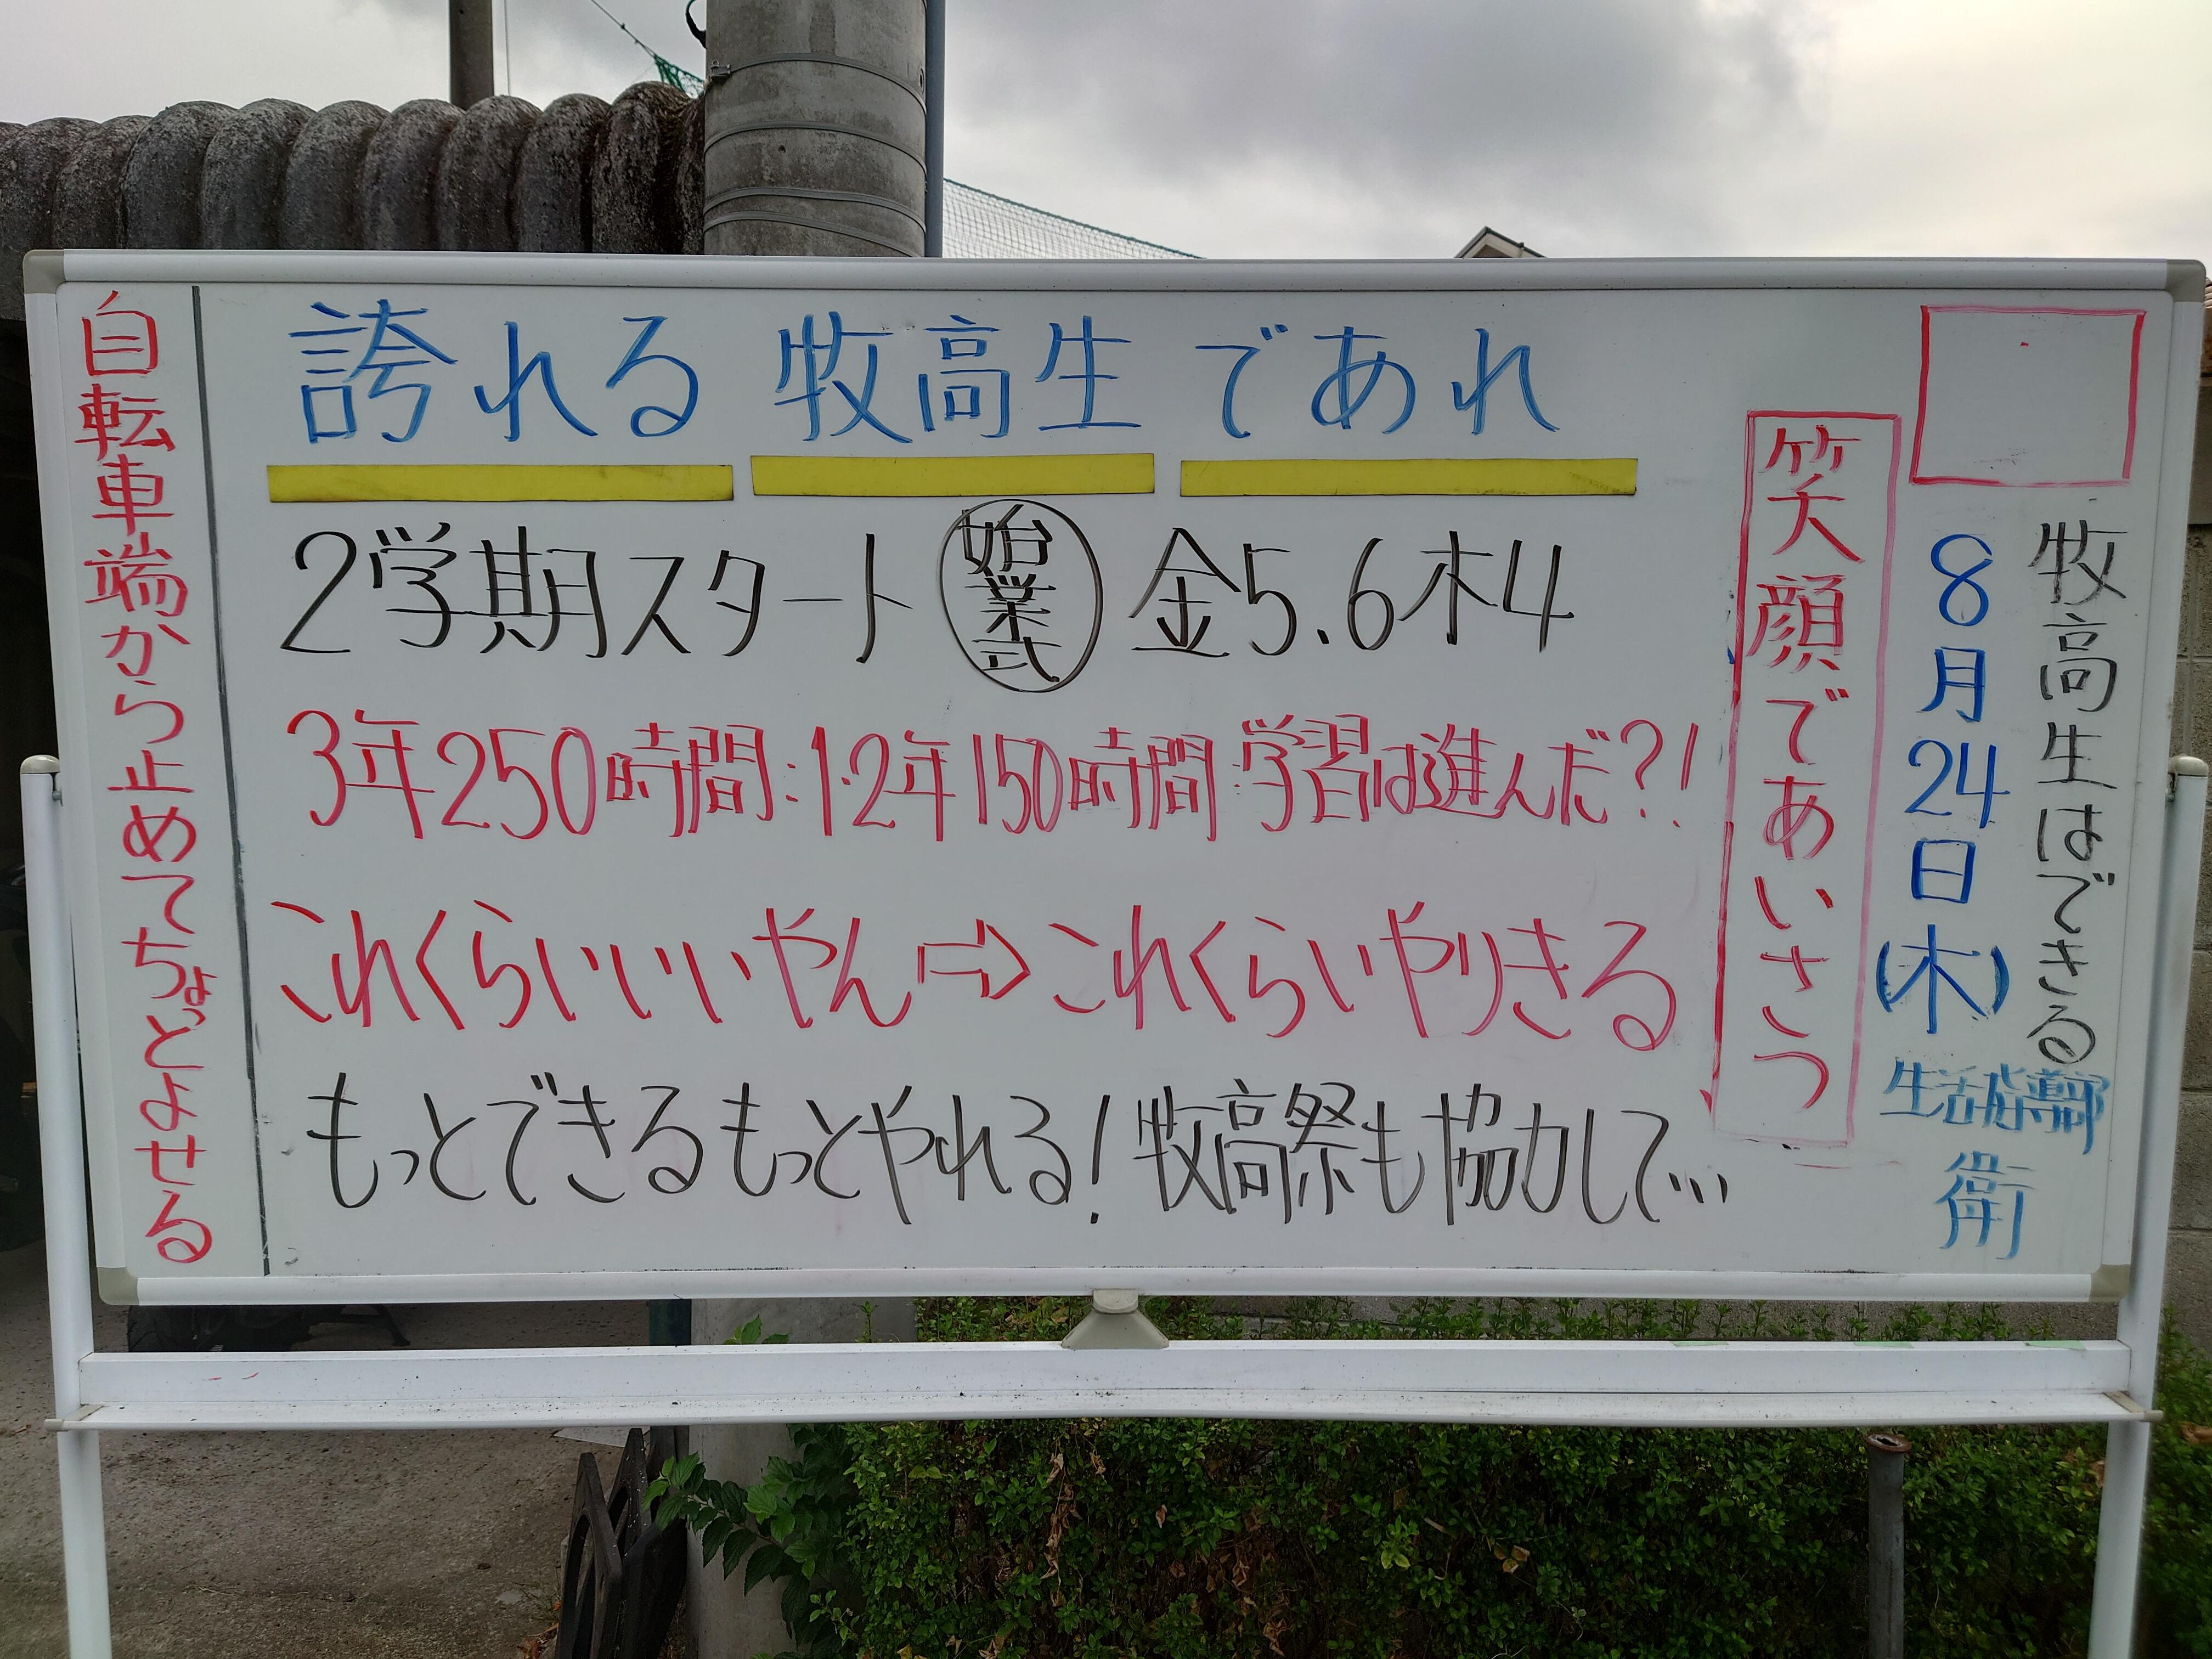 牧高生はできる
8月24日(木)
生活指導部
衛
笑顔であいさつ
誇れる 牧高生 であれ
2学期スタート 始業式 金5.6木4
3年250時間:1.2年150時間 学習は進んだ?!
これくらいいいやん⇨これくらいやりきる
もっとできるもっとやれる!牧高祭も協力して…
自転車端から止めてちょっとよせる